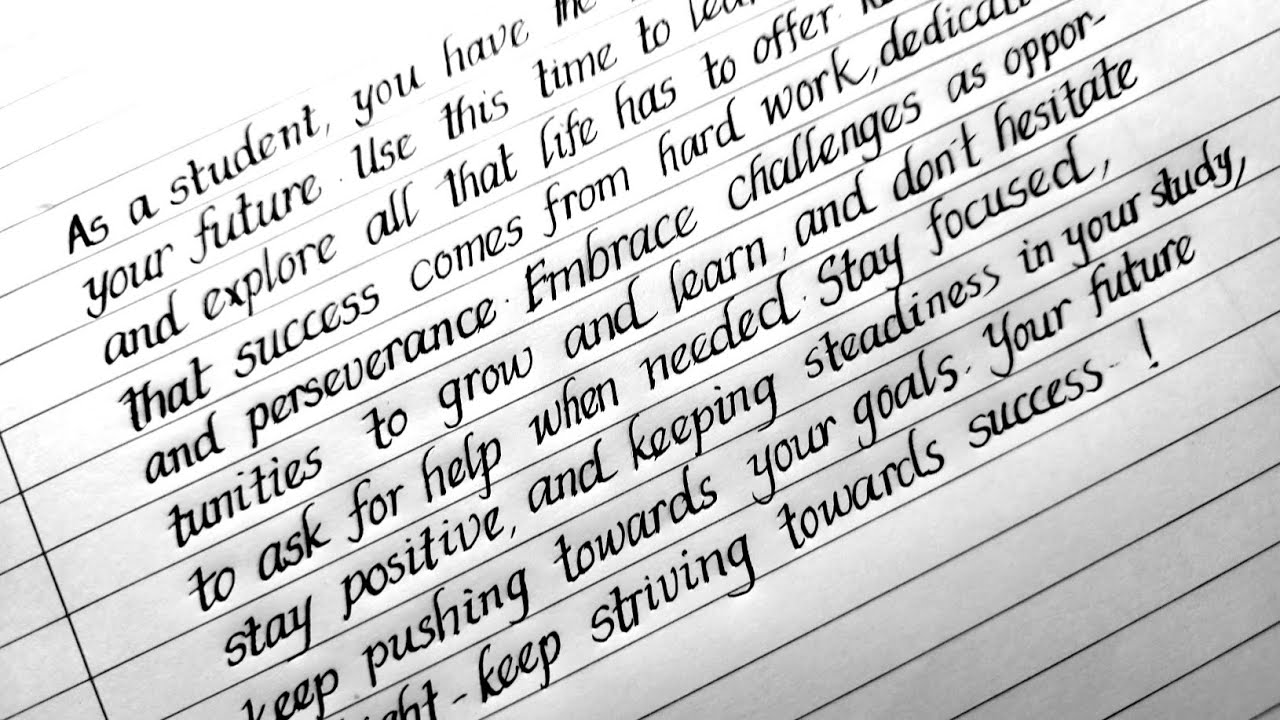 As a student, you have the
your future. Use this time to
and explore all that life has to offer.
that success comes from hard work,
and perseverance. Embrace challenges as oppor-
tunities to grow and learn, and don't hesitate
to ask for help when needed. Stay focused,
stay positive, and keeping steadiness in your study,
keep pushing towards your goals. Your future
- keep striving towards success !